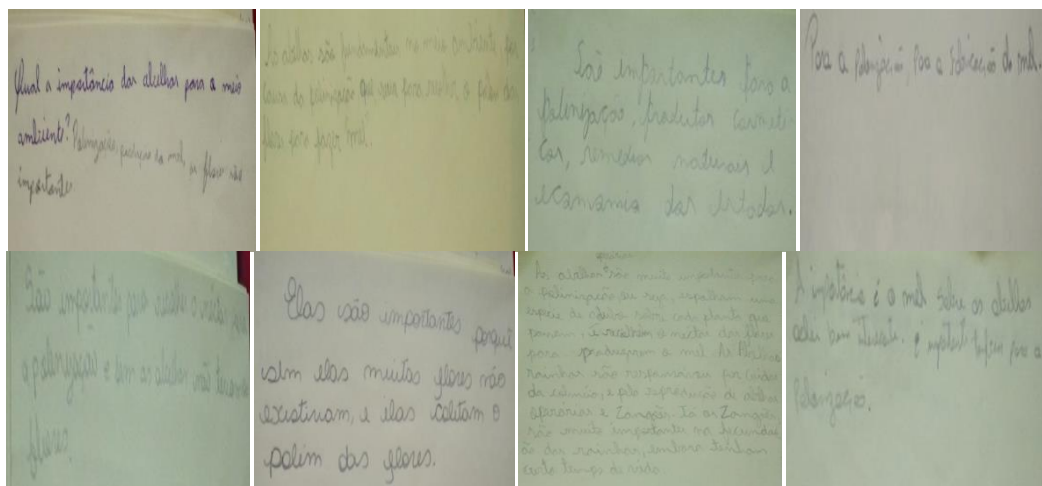 Qual a importância das abelhas para o meio
ambiente? Polinização, produção do mel, as flores são
importantes
As abelhas são fundamentais no meio ambiente, por
causa da polinização que para o polen das
flores para fazer mel.
São importantes para a
polinização, produtos cosméti-
cos, remedios naturais e
economia dos estados.
Para a polinização, para a fabricação do mel.
São importantes para
a polinização e sem as abelhas não teriamos
flores.
Elas são importantes porquê
sem elas muitas flores não
existiriam, e elas coletam o
polém das flores.
As abelhas são muito importantes
a polinização ou seja, espalham uma
espécie de sobre cada planta que
pousam, e recolhem o néctar das flores
para produzirem o mel. As Abelhas
rainhas são responsáveis por cuidar
da colonia, e pela reprodução de abelhas
operárias e Zangões. Já os Zangões
são muito importantes na fecunda
ão das rainhas, embora tenham
curto tempo de vida.
A importância é o mel sobre as abelhas
é importante para a
Polinização.